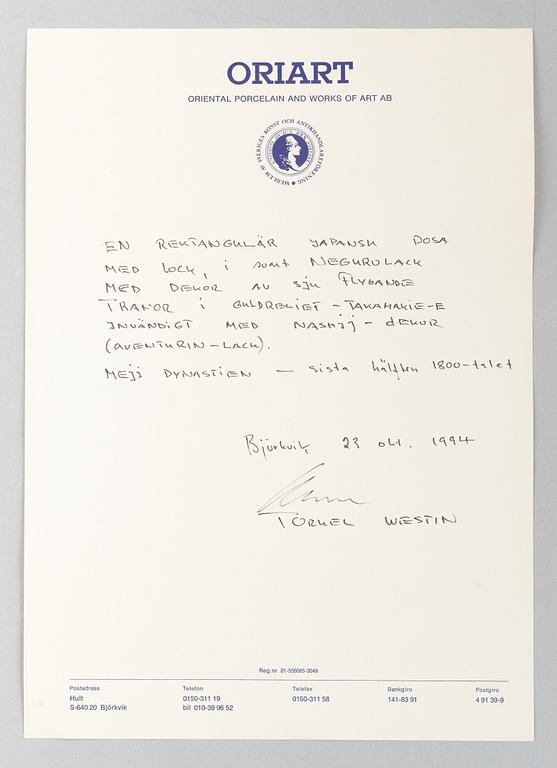 ORIART
ORIENTAL PORCELAIN AND WORKS OF ART AB
MEDLEM AV SVERIGES KONST OCH ANTIKHANDLAREFÖRENING
EN REKTANGULÄR JAPANSK DOSA
MED LOCK, i svart NEGURULACK
MED DEKOR AV sju FLYGANDE
TRANOR i GULDRELIEF - TAKAMAKIE-E
INVÄNDIGT MED NASHIJ - dEKOR
(AVENTURIN-LACK).
MEJJ DYNASTIEN - sista hälften 1800-talet
Björkvik 23 okt. 1994
TORKEL WESTIN
Reg.nr 01-556065-3049
Postadress Telefon Telefax Bankgiro Postgiro
Hult 0150-311 19 0150-311 58 141-83 91 4 91 39-9
S-640 20 Björkvik bil 010-39 96 52